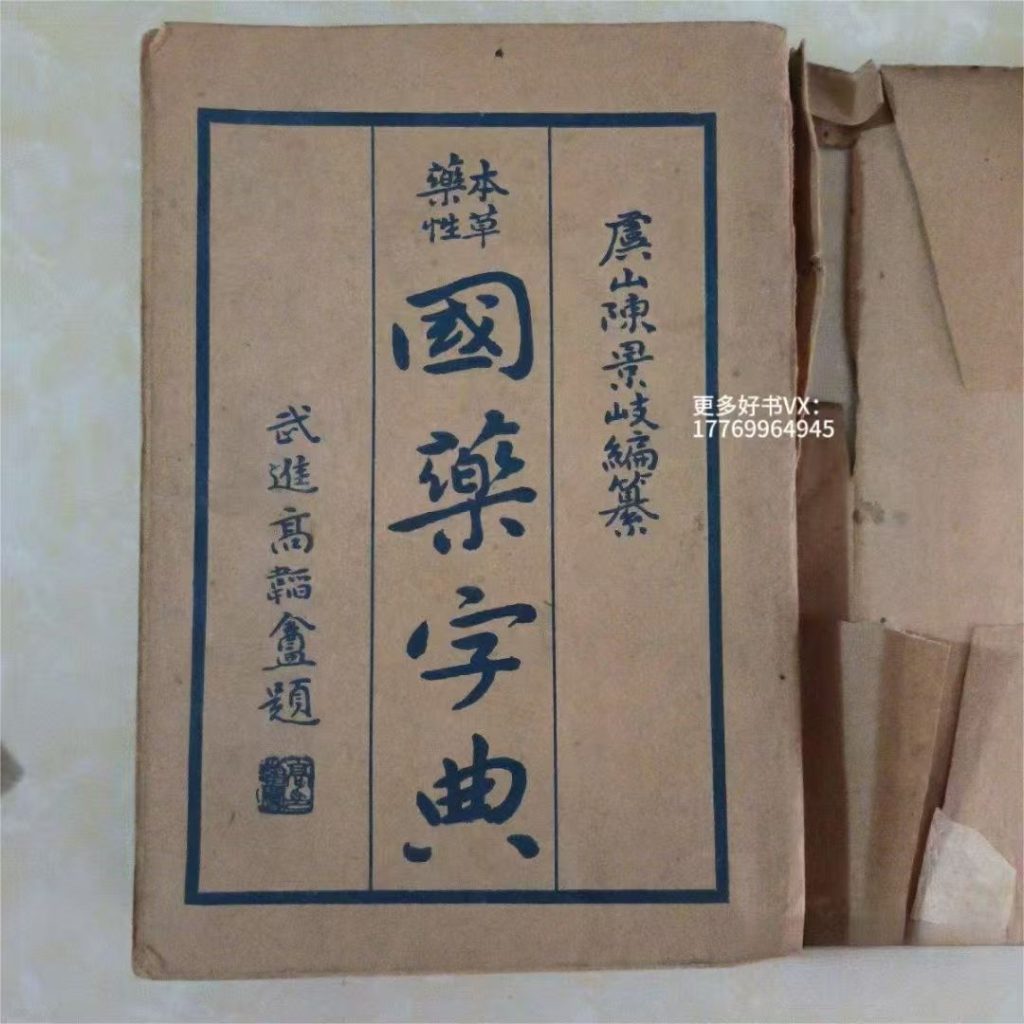 虞山陳景岐編纂
本草
藥性
國藥字典
武進高韜盦題
更多好书VX：
17769964945